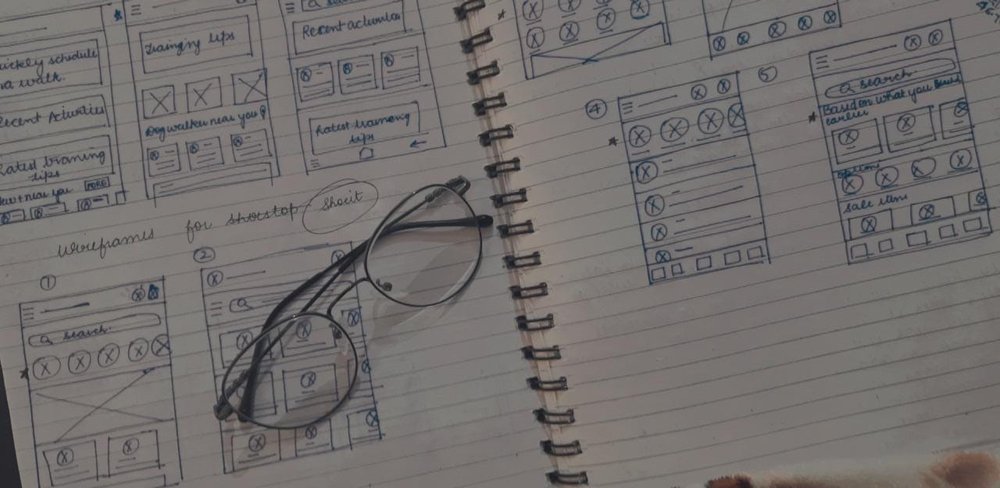 Quickly schedule
a walk.
Recent Activities
Latest training
tips
near you MORE
Training tips
Dog walker near you
Recent activities
Latest training
tips
wireframes for shoestop shoeit
①
search
②
④
⑤
search
Based on what you
options
sale items